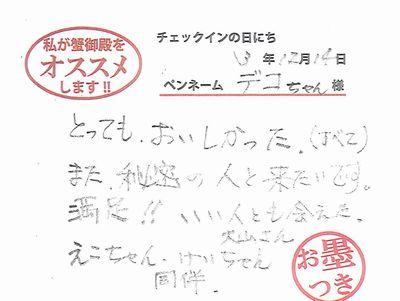 私が蟹御殿を
オススメ
します!!
チェックインの日にち
13年12月14日
ペンネーム デコちゃん 様
とっても、おいしかった。(すべて)
また、秘密の人と来たいです。
満足!! いい人とも会えた。
犬山さん
えこちゃん・けいちゃん
同伴.
お墨
つき